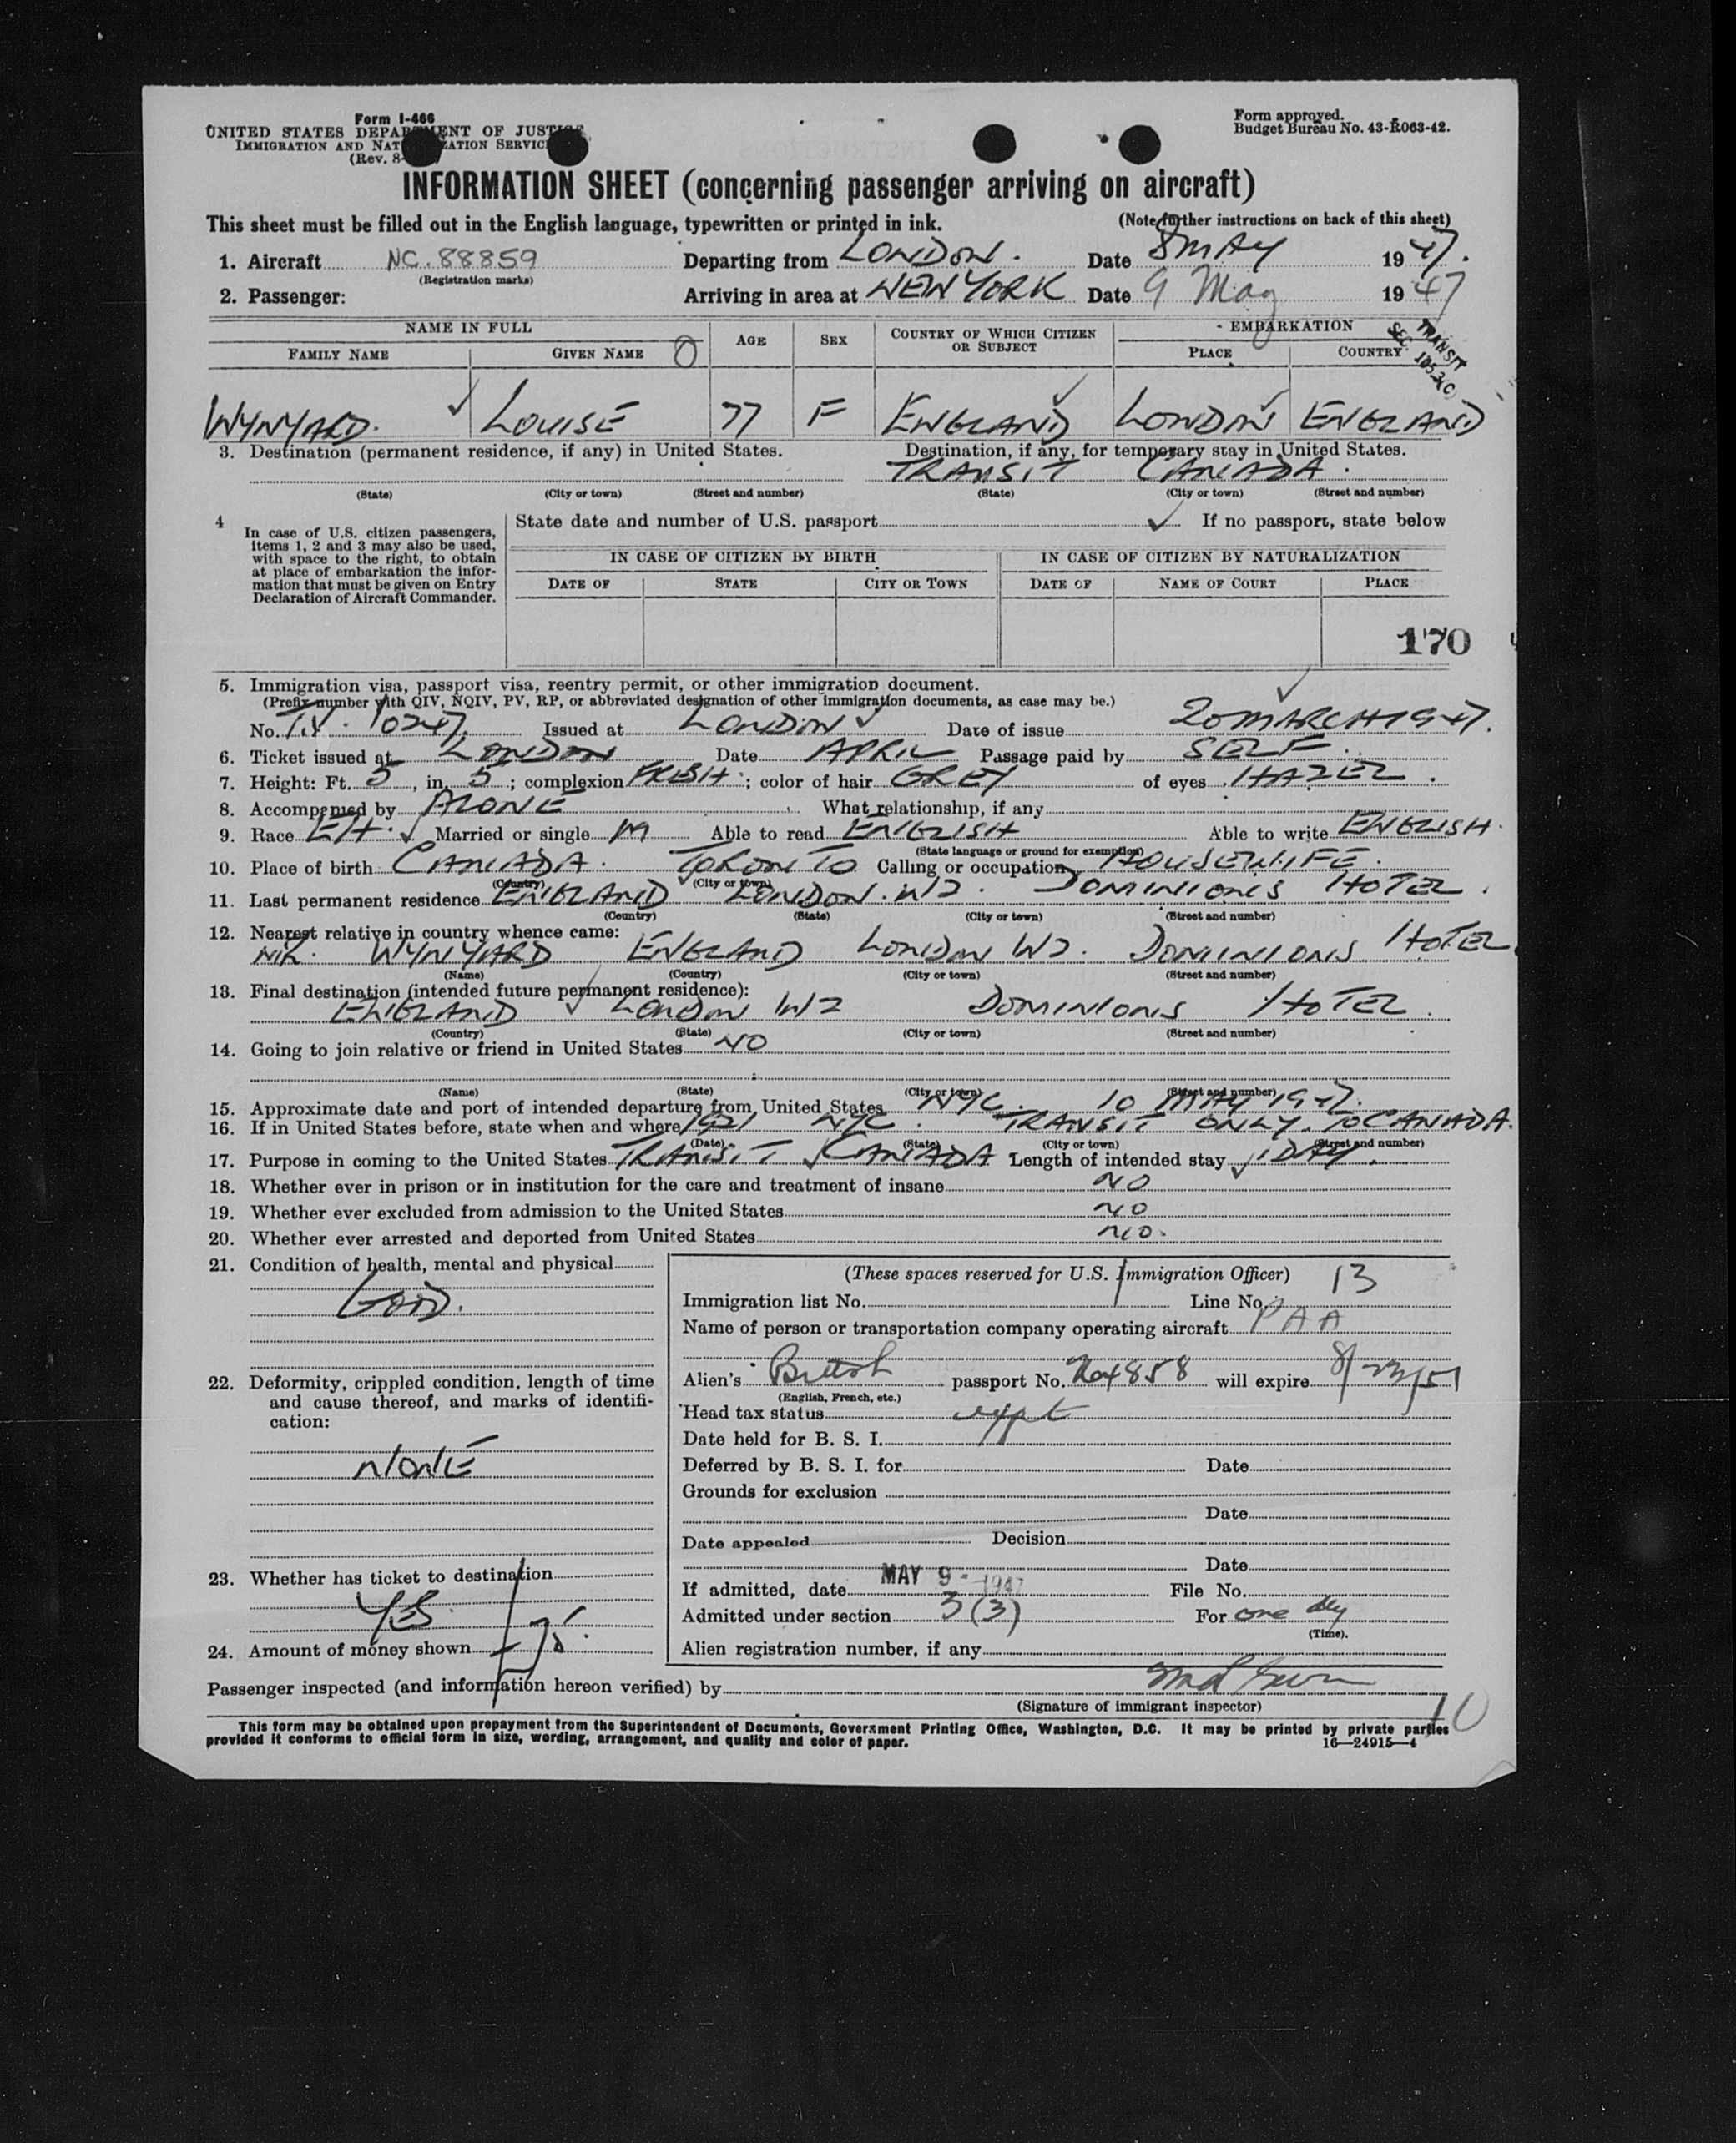 Form I-466
UNITED STATES DEPARTMENT OF JUSTICE
IMMIGRATION AND NATURALIZATION SERVICE
(Rev. 8-
Form approved.
Budget Bureau No. 43-R063-42.
INFORMATION SHEET (concerning passenger arriving on aircraft)
This sheet must be filled out in the English language, typewritten or printed in ink. (Note further instructions on back of this sheet)
1. Aircraft NC. 88859 Departing from LONDON. Date 8 MAY 1947.
(Registration marks)
2. Passenger: Arriving in area at NEW YORK Date 9 May 1947
NAME IN FULL AGE SEX COUNTRY OF WHICH CITIZEN OR SUBJECT EMBARKATION
FAMILY NAME GIVEN NAME PLACE COUNTRY
0
TRANSIT
SEC. 105.3(C)
WYNYARD. LOUISE 77 F ENGLAND LONDON ENGLAND
3. Destination (permanent residence, if any) in United States. Destination, if any, for temporary stay in United States.
TRANSIT CANADA.
(State) (City or town) (Street and number) (State) (City or town) (Street and number)
4 In case of U.S. citizen passengers, items 1, 2 and 3 may also be used, with space to the right, to obtain at place of embarkation the information that must be given on Entry Declaration of Aircraft Commander.
State date and number of U.S. passport If no passport, state below
IN CASE OF CITIZEN BY BIRTH IN CASE OF CITIZEN BY NATURALIZATION
DATE OF STATE CITY OR TOWN DATE OF NAME OF COURT PLACE
170
5. Immigration visa, passport visa, reentry permit, or other immigration document.
(Prefix number with QIV, NQIV, PV, RP, or abbreviated designation of other immigration documents, as case may be.)
No. T.V. 10247. Issued at LONDON Date of issue 20 MARCH 1947.
6. Ticket issued at LONDON Date APRIL Passage paid by SELF.
7. Height: Ft. 5, in. 5; complexion FRESH; color of hair GREY of eyes HAZEL.
8. Accompanied by ALONE What relationship, if any
9. Race Married or single M Able to read ENGLISH Able to write ENGLISH.
(State language or ground for exemption)
10. Place of birth CANADA. TORONTO Calling or occupation HOUSEWIFE.
(Country) (City or town)
11. Last permanent residence ENGLAND LONDON. W2. DOMINIONS HOTEL.
(Country) (State) (City or town) (Street and number)
12. Nearest relative in country whence came:
MR. WYNYARD ENGLAND LONDON W2. DOMINIONS HOTEL.
(Name) (Country) (City or town) (Street and number)
13. Final destination (intended future permanent residence):
ENGLAND LONDON W2 DOMINIONS HOTEL.
(Country) (State) (City or town) (Street and number)
14. Going to join relative or friend in United States NO
(Name) (State) (City or town) (Street and number)
15. Approximate date and port of intended departure from United States NYC. 10 MAY 1947.
16. If in United States before, state when and where 1921 NYC. TRANSIT ONLY. TO CANADA.
(Date) (State) (City or town) (Street and number)
17. Purpose in coming to the United States TRANSIT CANADA Length of intended stay 1 DAY.
18. Whether ever in prison or in institution for the care and treatment of insane NO
19. Whether ever excluded from admission to the United States NO
20. Whether ever arrested and deported from United States NO.
21. Condition of health, mental and physical
GOOD.
22. Deformity, crippled condition, length of time and cause thereof, and marks of identification:
NONE
23. Whether has ticket to destination
YES.
24. Amount of money shown
(These spaces reserved for U.S. Immigration Officer)
Immigration list No. Line No. 13
Name of person or transportation company operating aircraft PAA
Alien's British passport No. will expire
(English, French, etc.)
Head tax status
Date held for B. S. I.
Deferred by B. S. I. for Date
Grounds for exclusion
Date
Date appealed Decision
Date
If admitted, date MAY 9 - 1947 File No.
Admitted under section 3(3) For one day
(Time).
Alien registration number, if any
Passenger inspected (and information hereon verified) by
(Signature of immigrant inspector)
10
This form may be obtained upon prepayment from the Superintendent of Documents, Government Printing Office, Washington, D.C. It may be printed by private parties
provided it conforms to official form in size, wording, arrangement, and quality and color of paper. 16—24915—4